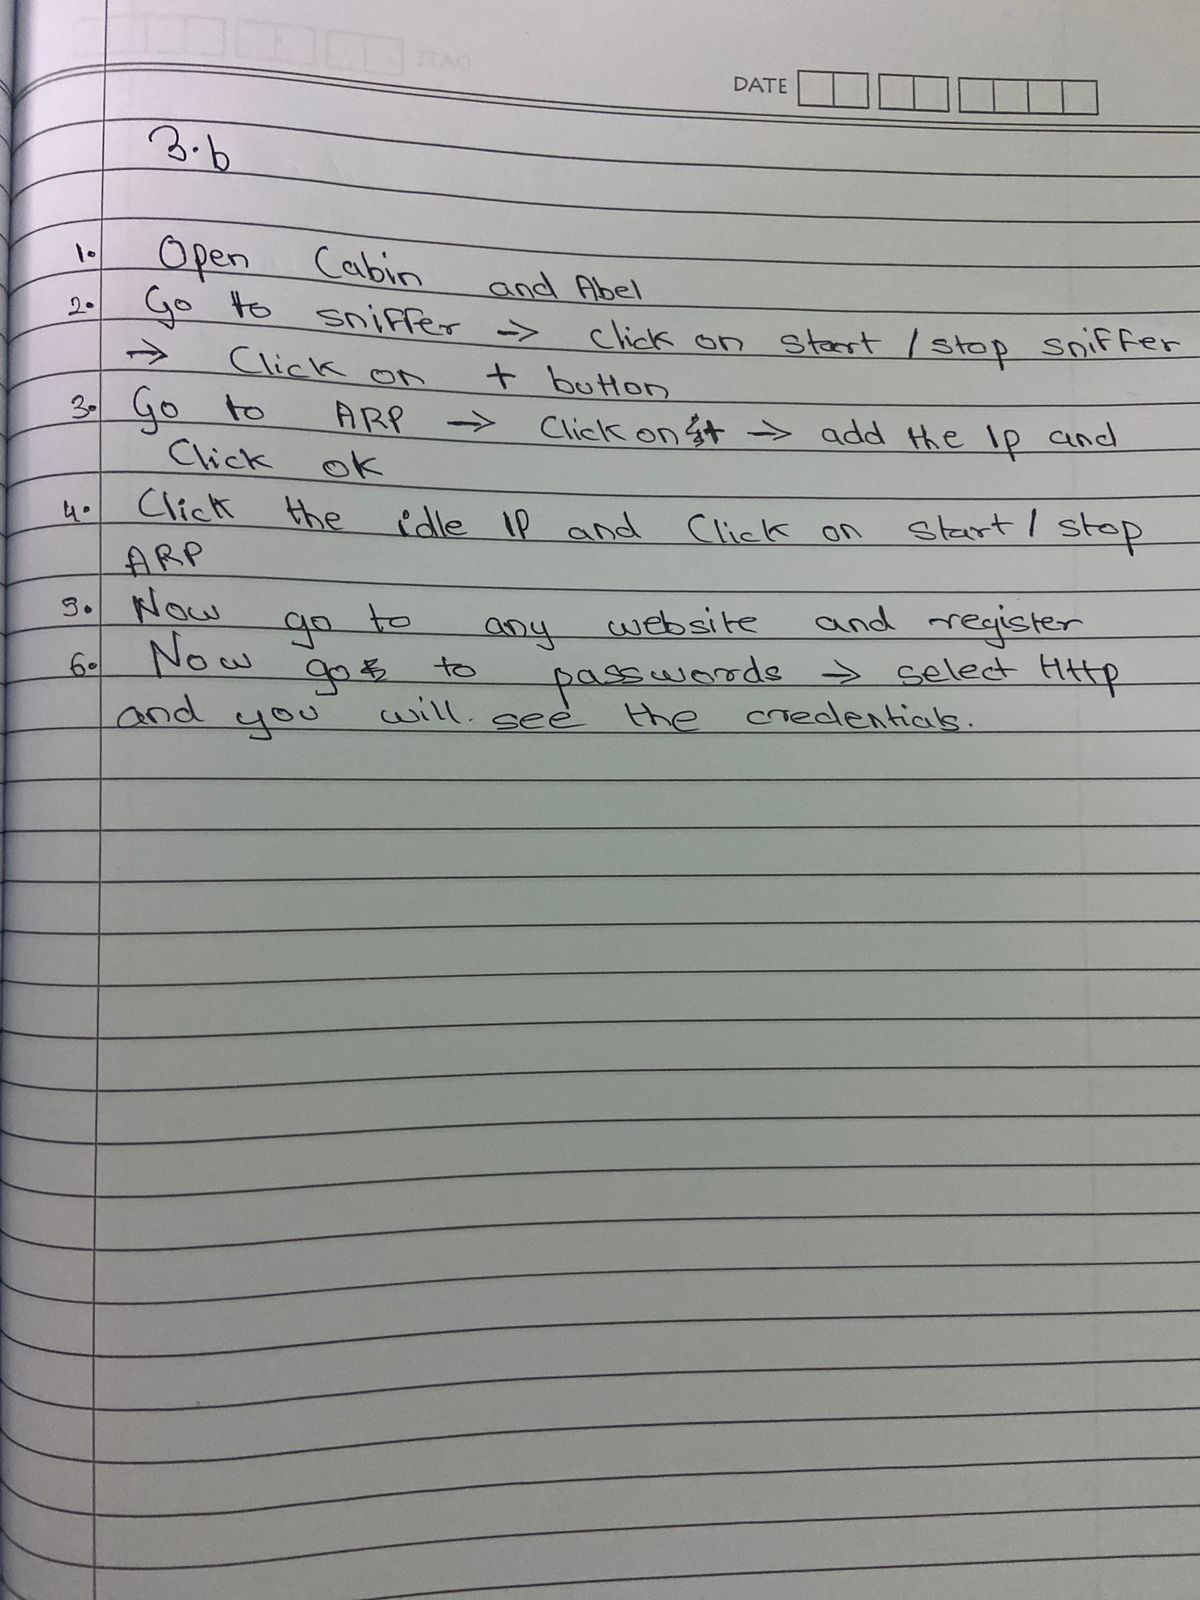 DATE
3.b
1. Open Cabin and Abel
2. Go to sniffer → Click on start / stop sniffer
→ Click on + button
3. Go to ARP → Click on + → add the Ip and
Click ok
4. Click the idle IP and Click on start / stop
ARP
5. Now go to any website and register
6. Now go to passwords → select Http
and you will. see the credentials.